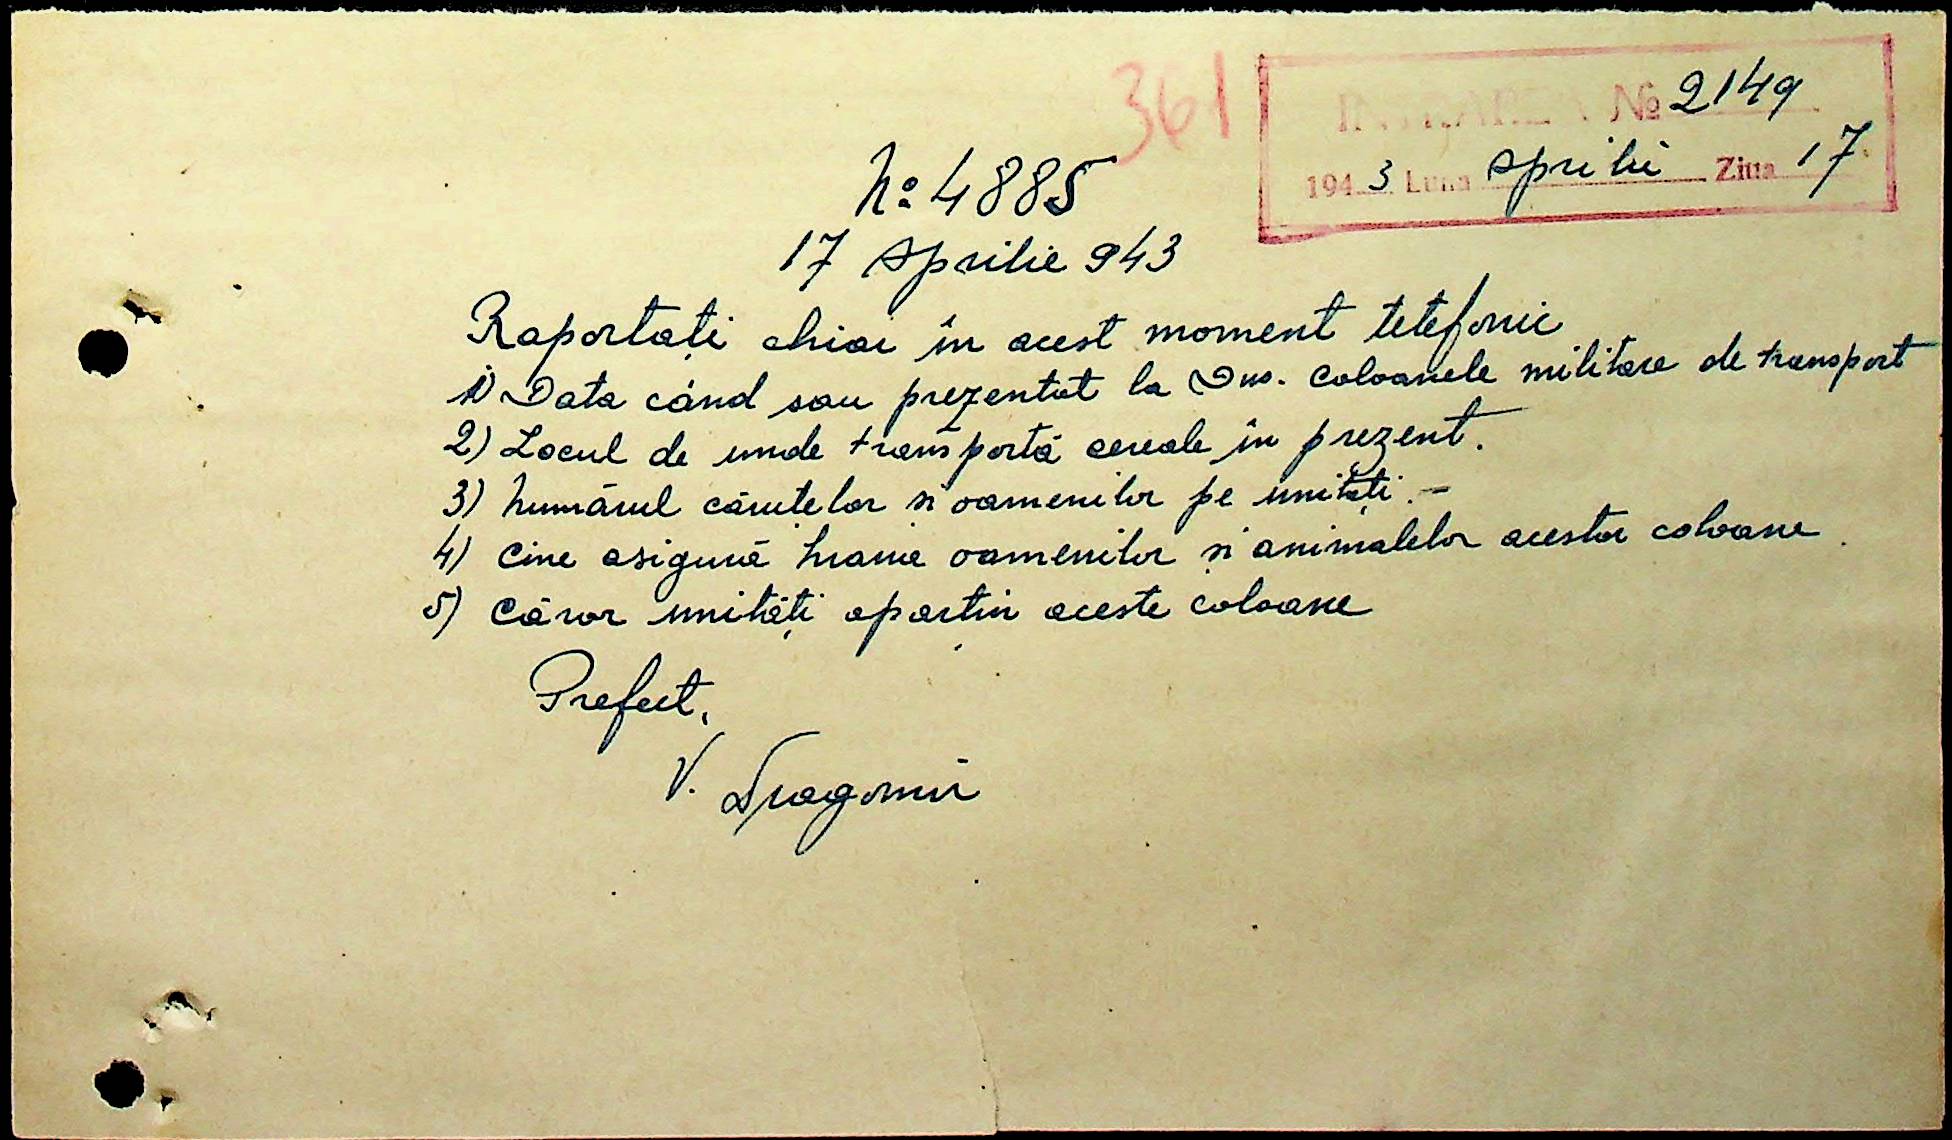 361
INTRAREA No 2149
1943 Luna Aprilie Ziua 17
No 4885
17 Aprilie 943
Raportați chiar în acest moment telefonic
1) Data când sau prezentat la Dvs. coloanele militare de transport
2) Locul de unde transportă cereale în prezent.
3) Numărul căruțelor si oamenilor pe unități.-
4) Cine asigură hrana oamenilor și animalelor acestor coloane.
5) Căror unități apartin aceste coloane
Prefect,
V. Dragomir